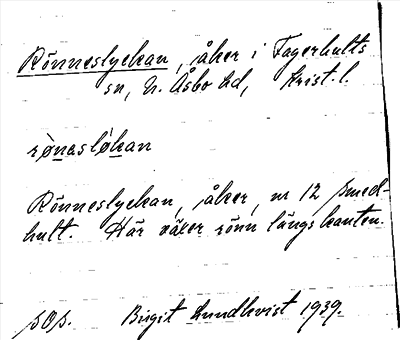 Rönneslyckan, åker i Fagerhults
sn, N. Åsbo hd, Krist. l.
rònaslø̀kan
Rönneslyckan, åker, nr 12 Smed-
hult. Här växer rönn längs kanten.
sOs. Birgit Lundkvist 1939.